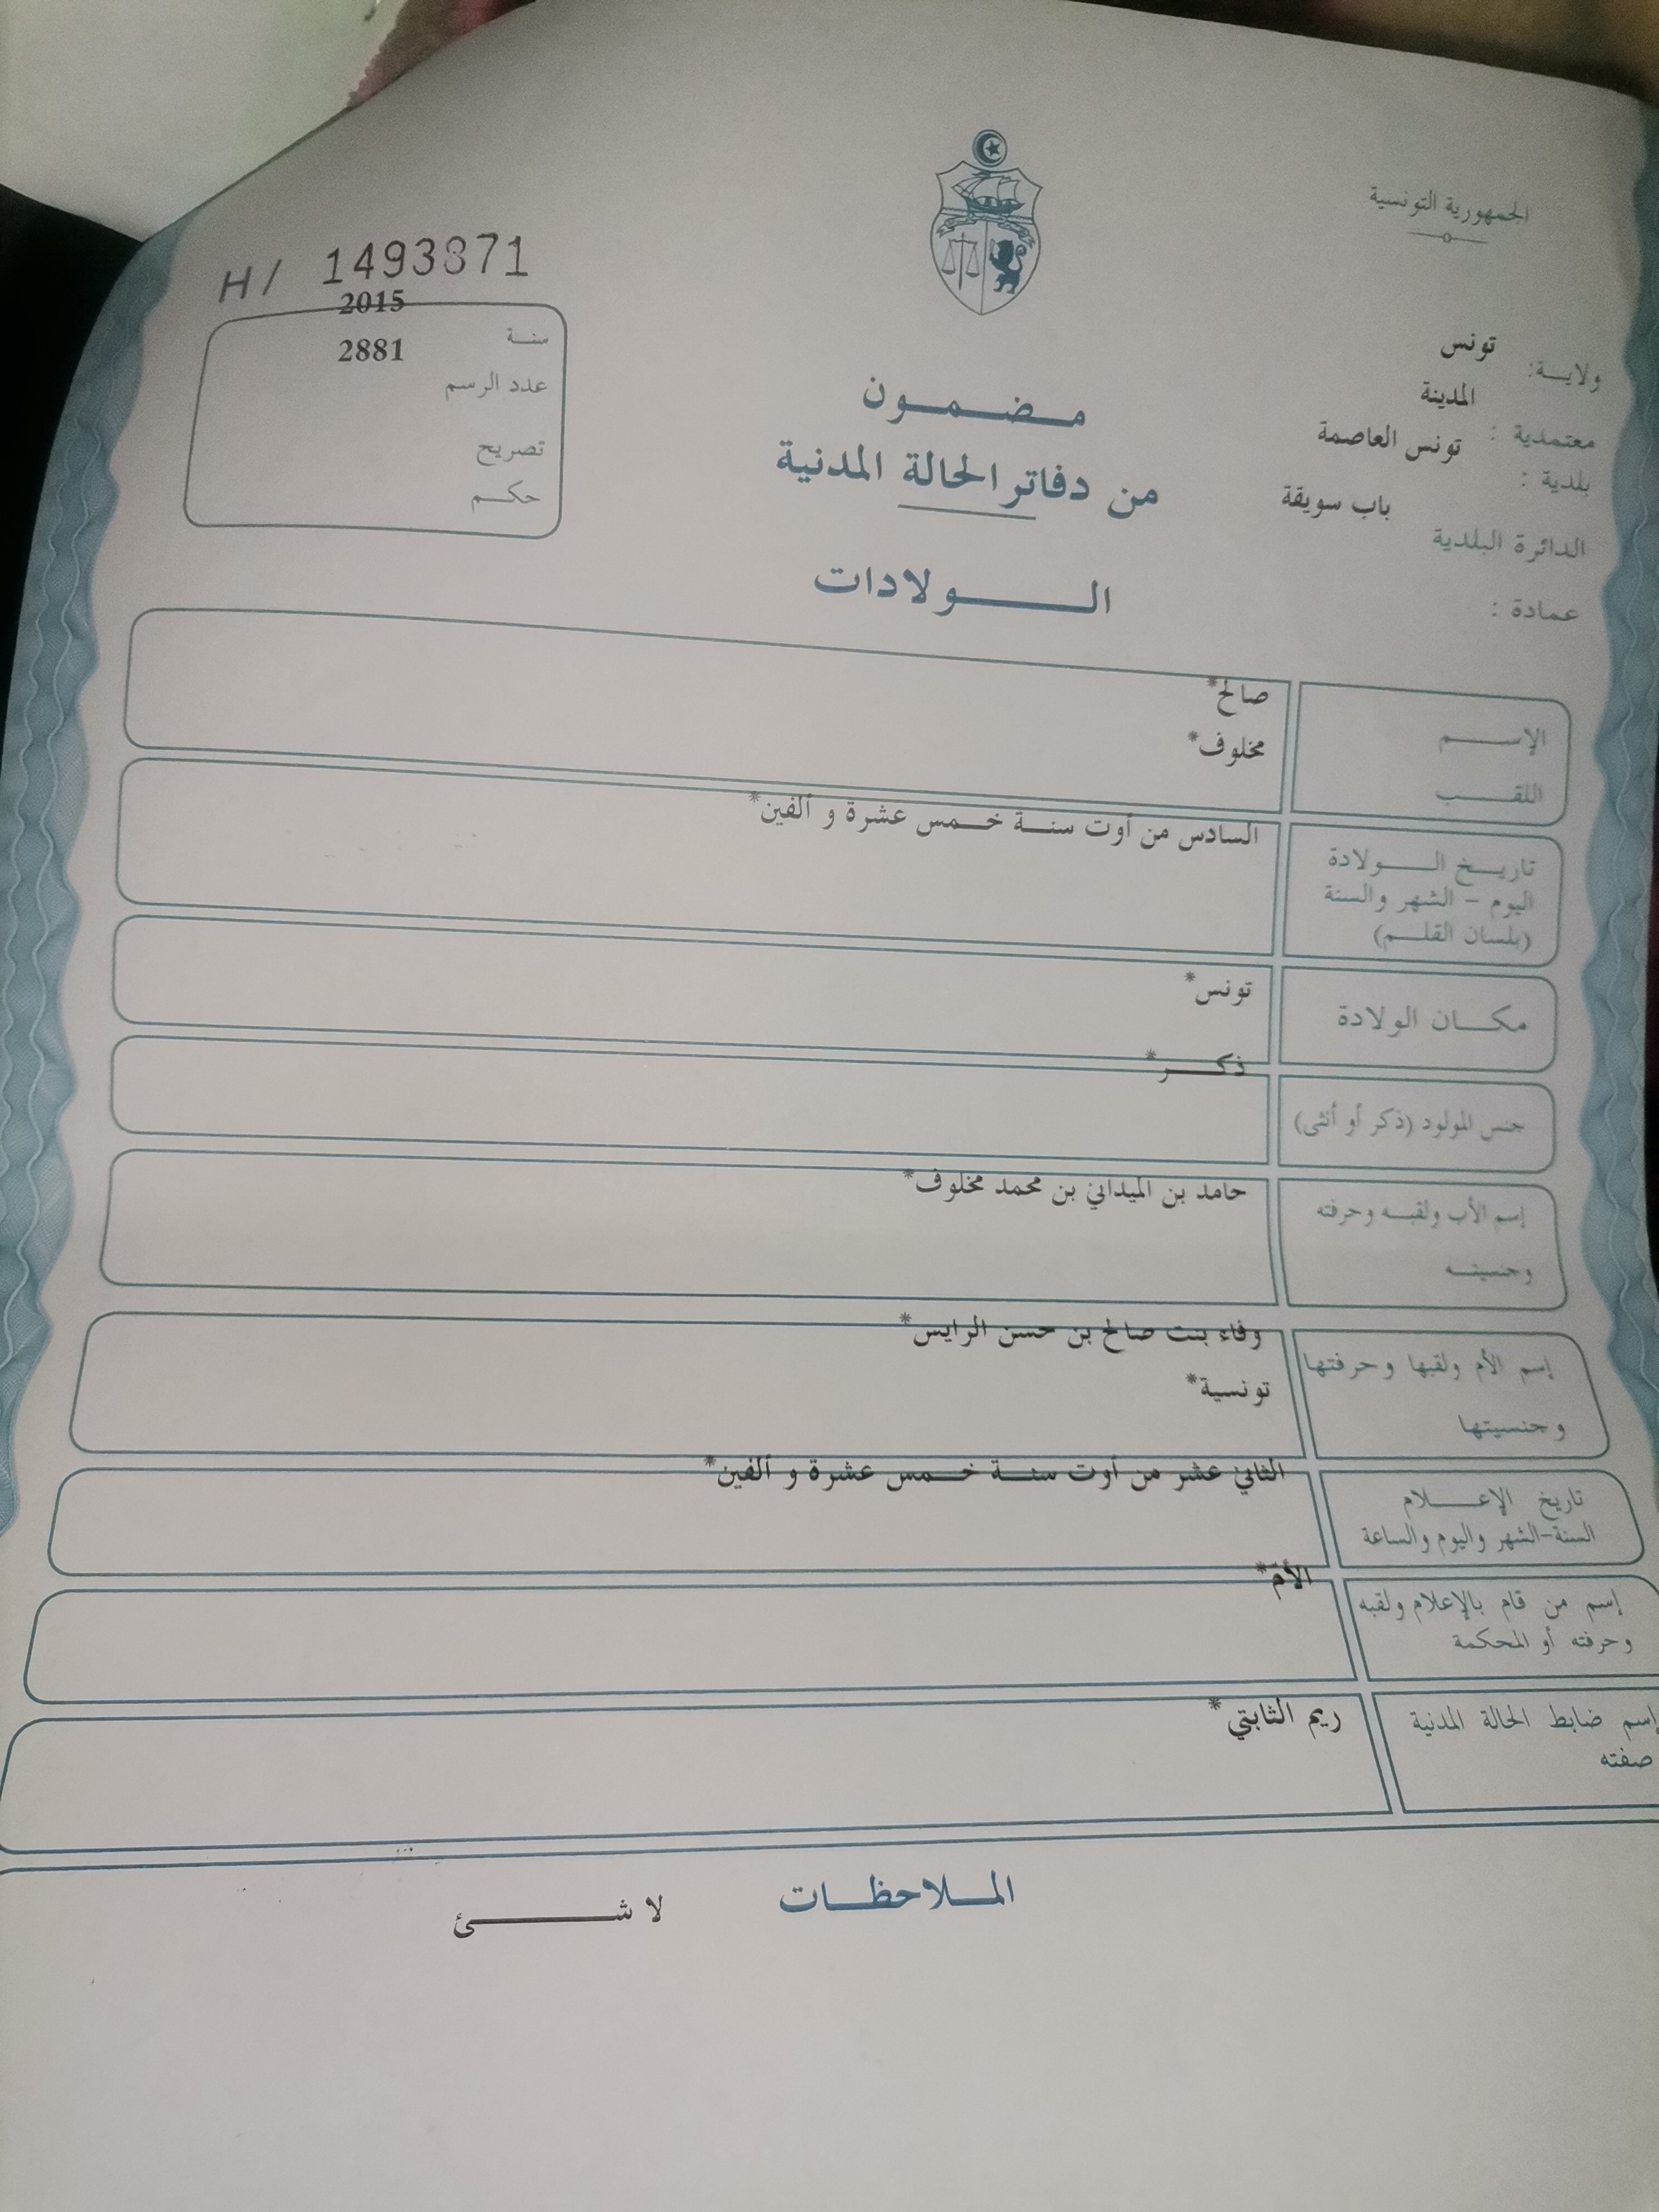 الجمهورية التونسية
ولايـــة: تونس
معتمدية : المدينة
بلدية : تونس العاصمة
الدائرة البلدية باب سويقة
عمادة :
H/ 1493871
سنـــة 2015
عدد الرسم 2881
تصريح
حكـــم
مـضـمـون
من دفاتر الحالة المدنية
الـــولادات
الإســـــم صالح*
اللقـــــب مخلوف*
تاريـــخ الـــولادة السادس من أوت سنـــة خـــمس عشرة و ألفين*
اليوم - الشهر والسنة
(بلسان القلـــم)
مكـــان الولادة تونس*
جنس المولود (ذكر أو أنثى) ذكـــر*
إسم الأب ولقبـــه وحرفته حامد بن الميداني بن محمد مخلوف*
وجنسيتـــه
إسم الأم ولقبها وحرفتها وفاء بنت صالح بن حسن الرايس*
وجنسيتها تونسية*
تاريخ الإعـــلام الثاني عشر من أوت سنـــة خـــمس عشرة و ألفين*
السنة-الشهر واليوم والساعة
إسم من قام بالإعلام ولقبه الأم*
وحرفته أو المحكمة
إسم ضابط الحالة المدنية ريم الثابتي*
صفته
المـــلاحظـــات لا شـــئ